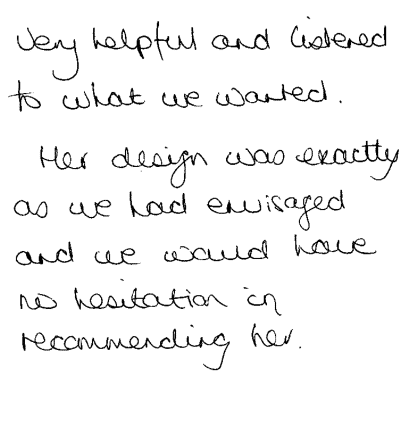 Very helpful and listened
to what we wanted.
Her design was exactly
as we had envisaged
and we would have
no hesitation in
recommending her.